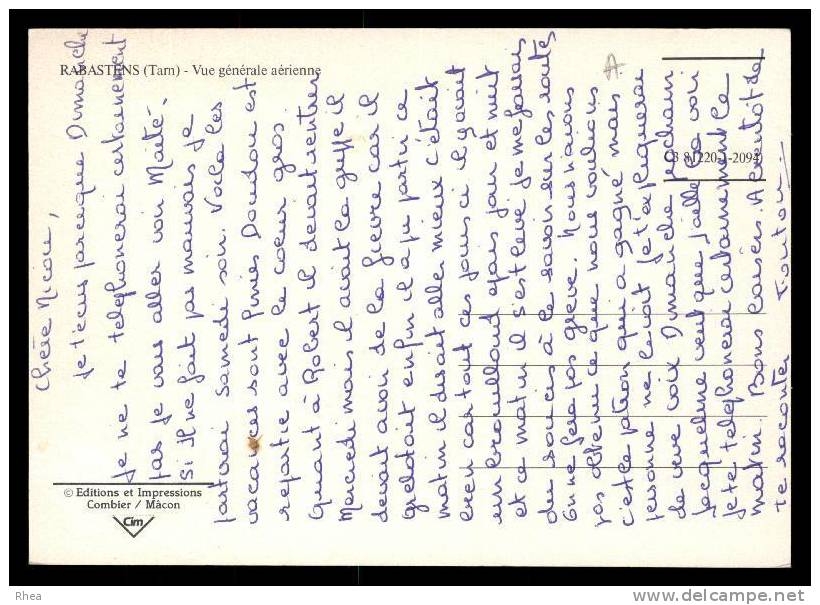 RABASTENS (Tarn) - Vue générale aérienne
C3 81220-1-2094
© Editions et Impressions
Combier / Mâcon
Cim
Chère Nicou,
Je t'écris parceque Dimanche
Je ne te telephonerai certainement
pas Je vais aller voir Maité.
Si Il ne fait pas mauvais Je
partirai Samedi soir. Voila les
vacances sont finies Doudou est
repartie avec le coeur gros
Quant à Robert il devait rentrer
Mercredi mais il avait la grippe il
devait avoir de la fievre car il
grelotait enfin il a pu partir ce
matin il disait aller mieux c'était
bien car tout ces jours ci il y avait
un brouillard epais jour et nuit
et ce matin il s'est levé je me faisais
du soucis à le savoir sur les routes
On ne fera pas greve. Nous n'avons
pas obtenu ce que nous voulions
c'est le patron qui a gagné mais
personne ne le voit Je t'expliquerai
de vive voix Dimanche prochain
Jacqueline veut que j'aille la voir
Je te telephonerai certainement le
matin. Bons baisers. A bientôt de
te raconter Tonton.
A
Rhea
www.delcampe.net